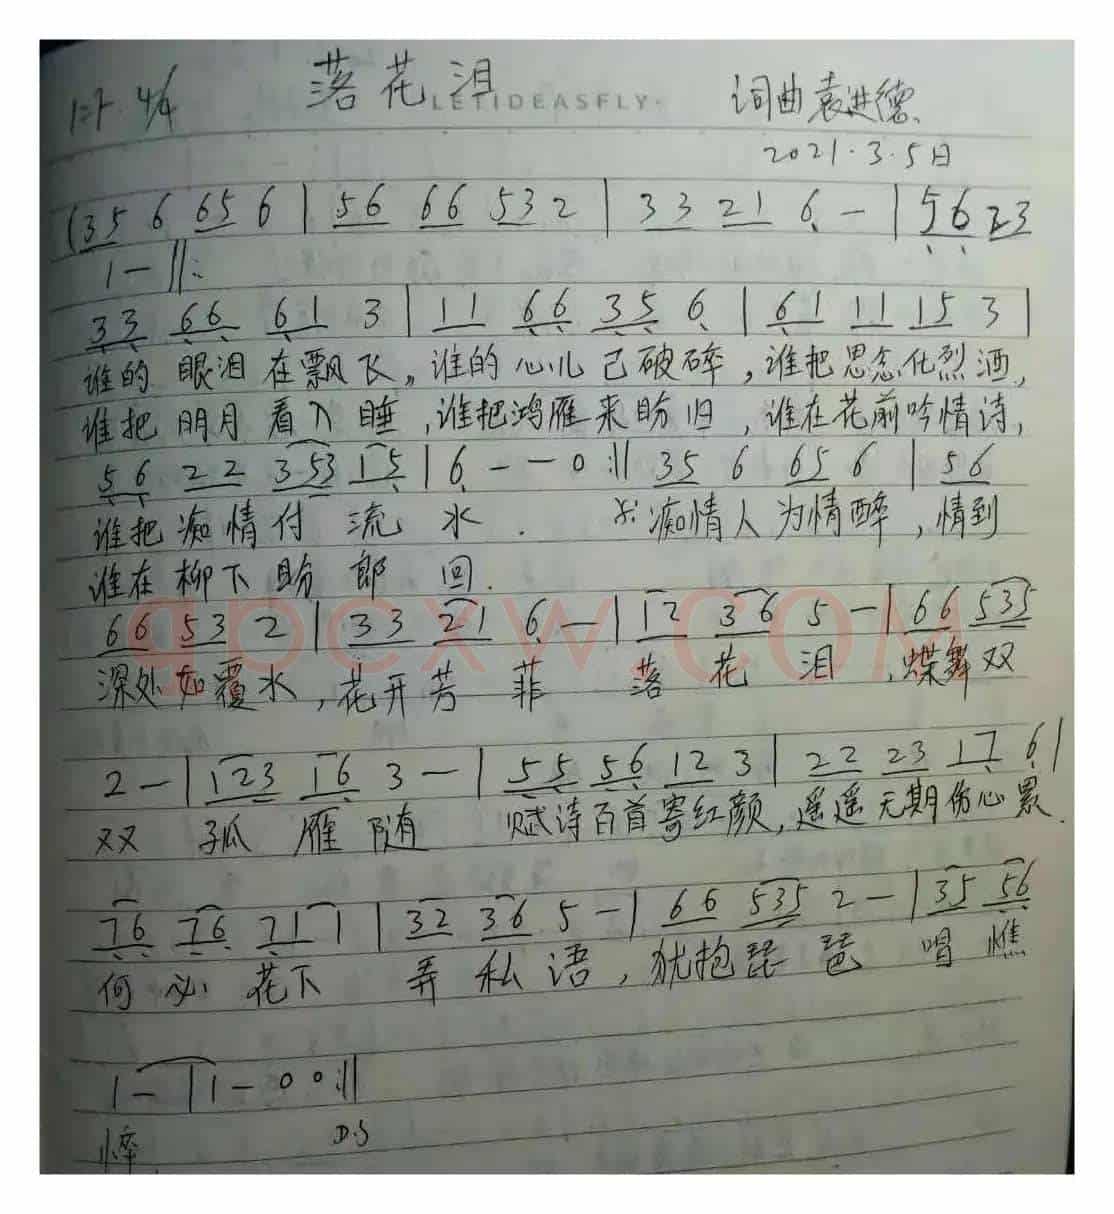 落花泪
LETIDEASFLY
1=F 4/4
词曲袁进德
2021.3.5日
(35 6 65 6 | 56 66 53 2 | 33 21 6 — | 56 23
1 — ‖:
33 66 61 3 | 11 66 35 6 | 61 11 15 3 |
谁的 眼泪 在飘飞,谁的心儿已破碎,谁把思念化烈酒,
谁把 明月 看入睡,谁把鸿雁来盼归,谁在花前吟情诗,
56 22 353 15 | 6 — — 0 :‖ 35 6 65 6 | 56
谁把痴情付流水. 痴情人为情醉,情到
谁在柳下盼郎回.
66 53 2 | 33 21 6 — | 12 36 5 — | 66 535
深处如覆水,花开芳菲 落花泪,蝶舞双
qpcxw.com
2 — | 123 16 3 — | 55 56 12 3 | 22 23 17 6 |
双 孤雁随 赋诗百首寄红颜,遥遥无期伤心累.
76 76 71 1 | 32 36 5 — | 66 535 2 — | 35 56
何必花下弄私语,犹抱琵琶唱憔
1 — | 1 — 0 0 :‖
悴. D.S